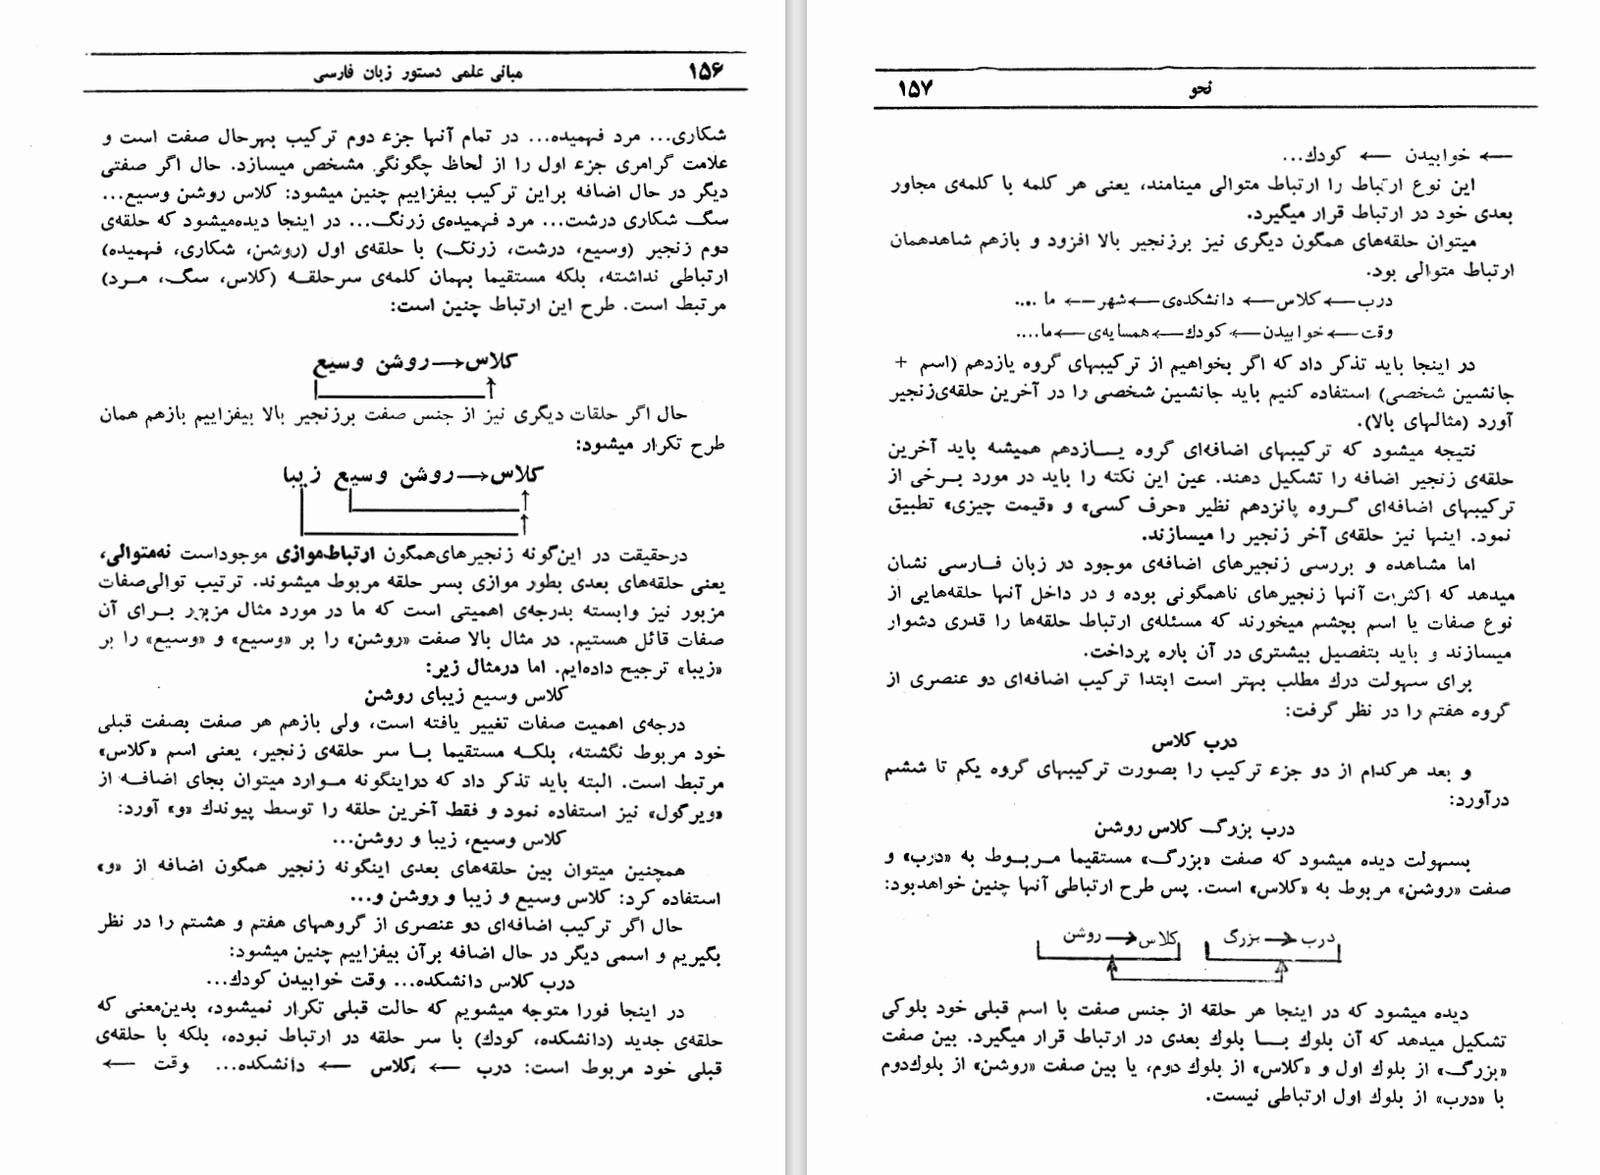 ۱۵۶ مبانی علمی دستور زبان فارسی
شکاری... مرد فهمیده... در تمام آنها جزء دوم ترکیب بهرحال صفت است و
علامت گرامری جزء اول را از لحاظ چگونگی مشخص میسازد. حال اگر صفتی
دیگر در حال اضافه براین ترکیب بیفزاییم چنین میشود: کلاس روشن وسیع...
سگ شکاری درشت... مرد فهمیده‌ی زرنگ... در اینجا دیده‌میشود که حلقه‌ی
دوم زنجیر (وسیع، درشت، زرنگ) با حلقه‌ی اول (روشن، شکاری، فهمیده)
ارتباطی نداشته، بلکه مستقیما بهمان کلمه‌ی سرحلقه (کلاس، سگ، مرد)
مرتبط است. طرح این ارتباط چنین است:
کلاس→روشن وسیع
حال اگر حلقات دیگری نیز از جنس صفت برزنجیر بالا بیفزاییم بازهم همان
طرح تکرار میشود:
کلاس→روشن وسیع زیبا
درحقیقت در این‌گونه زنجیرهای‌همگون ارتباط‌موازی موجوداست نه‌متوالی،
یعنی حلقه‌های بعدی بطور موازی بسر حلقه مربوط میشوند. ترتیب توالی‌صفات
مزبور نیز وابسته بدرجه‌ی اهمیتی است که ما در مورد مثال مزبور برای آن
صفات قائل هستیم. در مثال بالا صفت «روشن» را بر «وسیع» و «وسیع» را بر
«زیبا» ترجیح داده‌ایم. اما درمثال زیر:
کلاس وسیع زیبای روشن
درجه‌ی اهمیت صفات تغییر یافته است، ولی بازهم هر صفت بصفت قبلی
خود مربوط نگشته، بلکه مستقیما با سر حلقه‌ی زنجیر، یعنی اسم «کلاس»
مرتبط است. البته باید تذکر داد که دراینگونه موارد میتوان بجای اضافه از
«ویرگول» نیز استفاده نمود و فقط آخرین حلقه را توسط پیوندك «و» آورد:
کلاس وسیع، زیبا و روشن...
همچنین میتوان بین حلقه‌های بعدی اینگونه زنجیر همگون اضافه از «و»
استفاده کرد: کلاس وسیع و زیبا و روشن و...
حال اگر ترکیب اضافه‌ای دو عنصری از گروههای هفتم و هشتم را در نظر
بگیریم و اسمی دیگر در حال اضافه برآن بیفزاییم چنین میشود:
درب کلاس دانشکده... وقت خوابیدن کودك...
در اینجا فورا متوجه میشویم که حالت قبلی تکرار نمیشود، بدین‌معنی که
حلقه‌ی جدید (دانشکده، کودك) با سر حلقه در ارتباط نبوده، بلکه با حلقه‌ی
قبلی خود مربوط است: درب ← کلاس ← دانشکده... وقت ←
نحو ۱۵۷
← خوابیدن ← کودك...
این نوع ارتباط را ارتباط متوالی مینامند، یعنی هر کلمه با کلمه‌ی مجاور
بعدی خود در ارتباط قرار میگیرد.
میتوان حلقه‌های همگون دیگری نیز برزنجیر بالا افزود و بازهم شاهدهمان
ارتباط متوالی بود.
درب←کلاس← دانشکده‌ی←شهر← ما ....
وقت←خوابیدن←کودك←همسایه‌ی←ما....
در اینجا باید تذکر داد که اگر بخواهیم از ترکیبهای گروه یازدهم (اسم +
جانشین شخصی) استفاده کنیم باید جانشین شخصی را در آخرین حلقه‌ی‌زنجیر
آورد (مثالهای بالا).
نتیجه میشود که ترکیبهای اضافه‌ای گروه یازدهم همیشه باید آخرین
حلقه‌ی زنجیر اضافه را تشکیل دهند. عین این نکته را باید در مورد برخی از
ترکیبهای اضافه‌ای گروه پانزدهم نظیر «حرف کسی» و «قیمت چیزی» تطبیق
نمود. اینها نیز حلقه‌ی آخر زنجیر را میسازند.
اما مشاهده و بررسی زنجیرهای اضافه‌ی موجود در زبان فارسی نشان
میدهد که اکثریت آنها زنجیرهای ناهمگونی بوده و در داخل آنها حلقه‌هایی از
نوع صفات یا اسم بچشم میخورند که مسئله‌ی ارتباط حلقه‌ها را قدری دشوار
میسازند و باید بتفصیل بیشتری در آن باره پرداخت.
برای سهولت درك مطلب بهتر است ابتدا ترکیب اضافه‌ای دو عنصری از
گروه هفتم را در نظر گرفت:
درب کلاس
و بعد هرکدام از دو جزء ترکیب را بصورت ترکیبهای گروه یکم تا ششم
درآورد:
درب بزرگ کلاس روشن
بسهولت دیده میشود که صفت «بزرگ» مستقیما مربوط به «درب» و
صفت «روشن» مربوط به «کلاس» است. پس طرح ارتباطی آنها چنین خواهدبود:
درب→بزرگ کلاس→روشن
دیده میشود که در اینجا هر حلقه از جنس صفت با اسم قبلی خود بلوکی
تشکیل میدهد که آن بلوك با بلوك بعدی در ارتباط قرار میگیرد. بین صفت
«بزرگ» از بلوك اول و «کلاس» از بلوك دوم، یا بین صفت «روشن» از بلوك‌دوم
با «درب» از بلوك اول ارتباطی نیست.